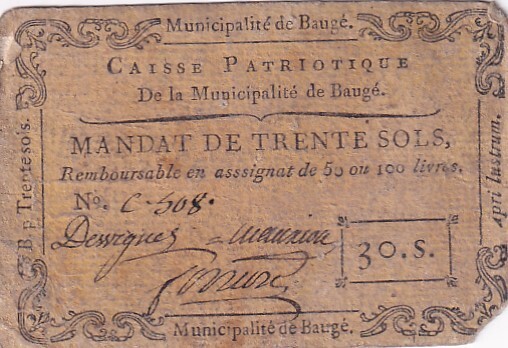 Municipalité de Baugé.
CAISSE PATRIOTIQUE
De la Municipalité de Baugé.
MANDAT DE TRENTE SOLS,
Remboursable en asssignat de 50 ou 100 livres.
No. C. 508.
30.S.
Municipalité de Baugé.
B p Trente sols.
Apri lustrum.